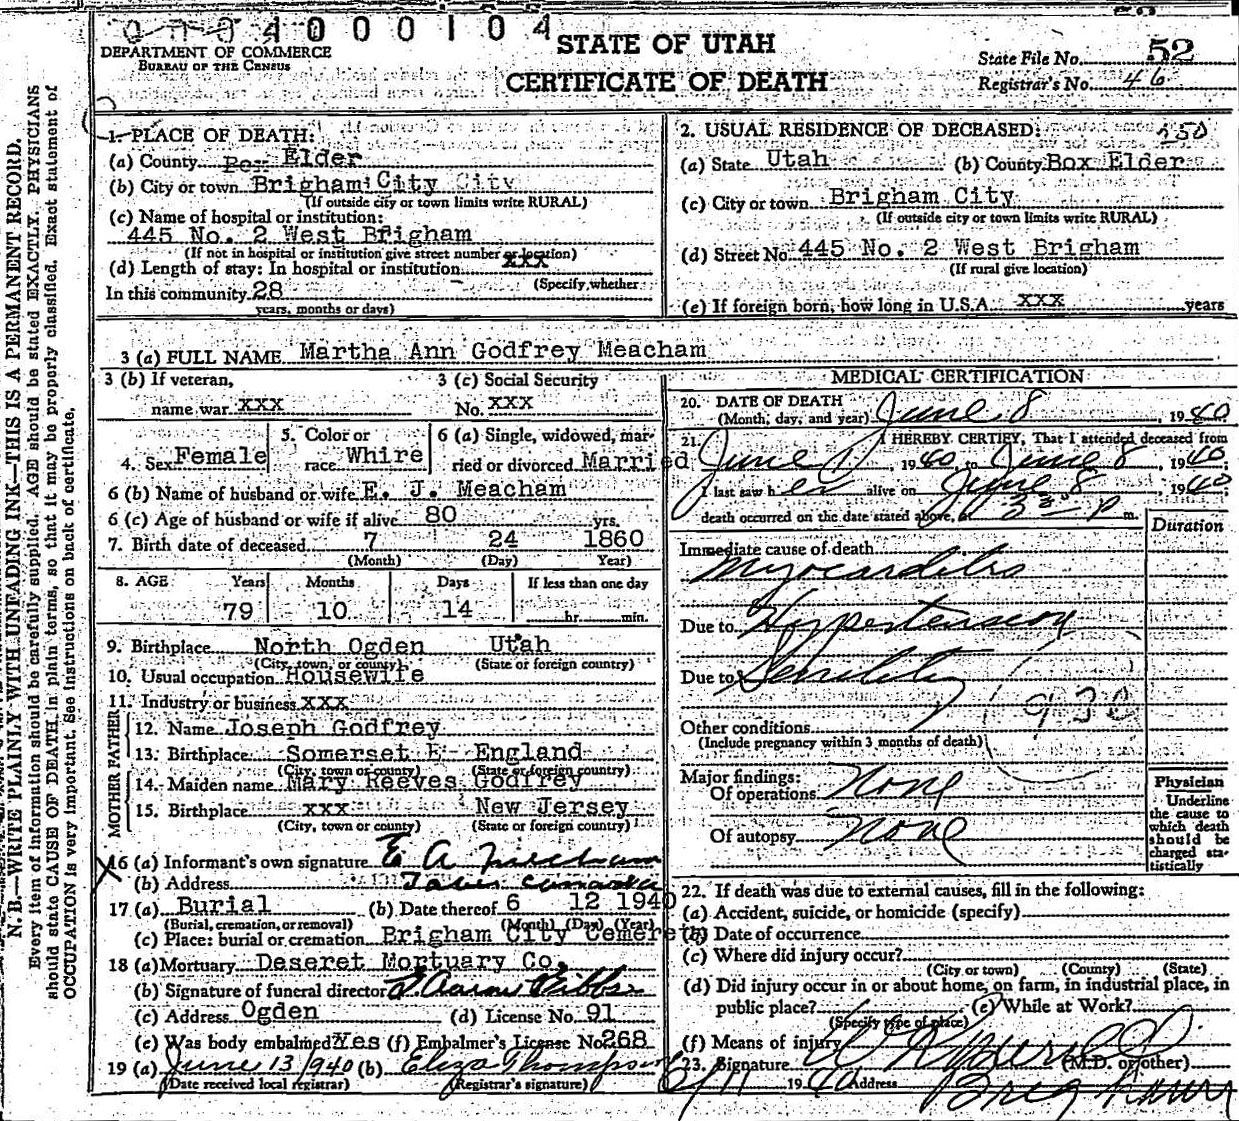 0 0 0 1 0 4
DEPARTMENT OF COMMERCE
BUREAU OF THE CENSUS
STATE OF UTAH
CERTIFICATE OF DEATH
State File No. 52
Registrar's No. 46
N. B.—WRITE PLAINLY WITH UNFADING INK—THIS IS A PERMANENT RECORD.
Every item of information should be carefully supplied. AGE should be stated EXACTLY. PHYSICIANS
should state CAUSE OF DEATH in plain terms, so that it may be properly classified. Exact statement of
OCCUPATION is very important. See instructions on back of certificate.
1. PLACE OF DEATH:
(a) County Box Elder
(b) City or town Brigham City City
(If outside city or town limits write RURAL)
(c) Name of hospital or institution:
445 No. 2 West Brigham
(If not in hospital or institution give street number or location)
(d) Length of stay: In hospital or institution xxx
(Specify whether
In this community 28
years, months or days)
2. USUAL RESIDENCE OF DECEASED:
(a) State Utah (b) County Box Elder
(c) City or town Brigham City
(If outside city or town limits write RURAL)
(d) Street No. 445 No. 2 West Brigham
(If rural give location)
(e) If foreign born, how long in U.S.A. xxx years
3 (a) FULL NAME Martha Ann Godfrey Meacham
3 (b) If veteran,
name war xxx
3 (c) Social Security
No. xxx
4. Sex Female
5. Color or
race Whire
6 (a) Single, widowed, mar-
ried or divorced Married
6 (b) Name of husband or wife E. J. Meacham
6 (c) Age of husband or wife if alive 80 yrs.
7. Birth date of deceased 7 24 1860
(Month) (Day) Year)
8. AGE Years Months Days If less than one day
79 10 14 hr. min.
9. Birthplace North Ogden Utah
(City, town, or county) (State or foreign country)
10. Usual occupation Housewife
11. Industry or business xxx
FATHER
12. Name Joseph Godfrey
13. Birthplace Somerset E England
(City, town or county) (State or foreign country)
MOTHER
14. Maiden name Mary Reeves Godfrey
15. Birthplace xxx New Jersey
(City, town or county) (State or foreign country)
X 16 (a) Informant's own signature E A Meacham
(b) Address Taber Canada
17 (a) Burial (b) Date thereof 6 12 1940
(Burial, cremation, or removal) (Month) (Day) (Year)
(c) Place: burial or cremation Brigham City Cemerety
18 (a) Mortuary Deseret Mortuary Co.
(b) Signature of funeral director
(c) Address Ogden (d) License No. 91
(e) Was body embalmed Yes (f) Embalmer's License No. 268
19 (a) June 13 1940 (b) Eliza Thompson
(Date received local registrar) (Registrar's signature)
MEDICAL CERTIFICATION
20. DATE OF DEATH
(Month, day, and year) June 8, 1940
21. I HEREBY CERTIFY, That I attended deceased from
June 1, 1940 to June 8, 1940
I last saw her alive on June 8, 1940
death occurred on the date stated above, at 2 30 P m.
Duration
Immediate cause of death
Myocarditis
Due to Hypertension
Due to Senility
930
Other conditions
(Include pregnancy within 3 months of death)
Major findings:
Of operations None
Of autopsy None
Physician
Underline
the cause to
which death
should be
charged sta-
tistically
22. If death was due to external causes, fill in the following:
(a) Accident, suicide, or homicide (specify)
(b) Date of occurrence
(c) Where did injury occur?
(City or town) (County) (State)
(d) Did injury occur in or about home, on farm, in industrial place, in
public place? (e) While at Work?
(Specify type of place)
(f) Means of injury
23. Signature (M.D. or other)
6/11 1940 Address Brigham